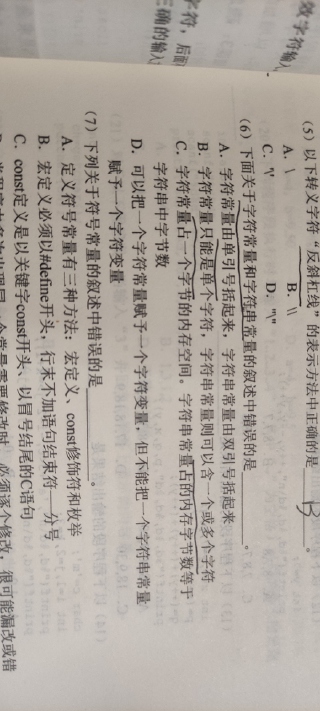 数字符输入
字符，后面
正确的输入
（5）以下转义字符“反斜杠线”的表示方法中正确的是 B 。
A．\ B．\\
C．'\' D．"\"
（6）下面关于字符常量和字符串常量的叙述中错误的是 。
A．字符常量由单引号括起来，字符串常量由双引号括起来
B．字符常量只能是单个字符，字符串常量则可以含一个或多个字符
C．字符常量占一个字节的内存空间。字符串常量占的内存字节数等于
字符串中字节数
D．可以把一个字符常量赋予一个字符变量，但不能把一个字符串常量
赋予一个字符变量
（7）下列关于符号常量的叙述中错误的是 。
A．定义符号常量有三种方法：宏定义、const修饰符和枚举
B．宏定义必须以#define开头，行末不加语句结束符——分号
C．const定义是以关键字const开头、以冒号结尾的C语句
必须逐个修改，很可能漏改或错